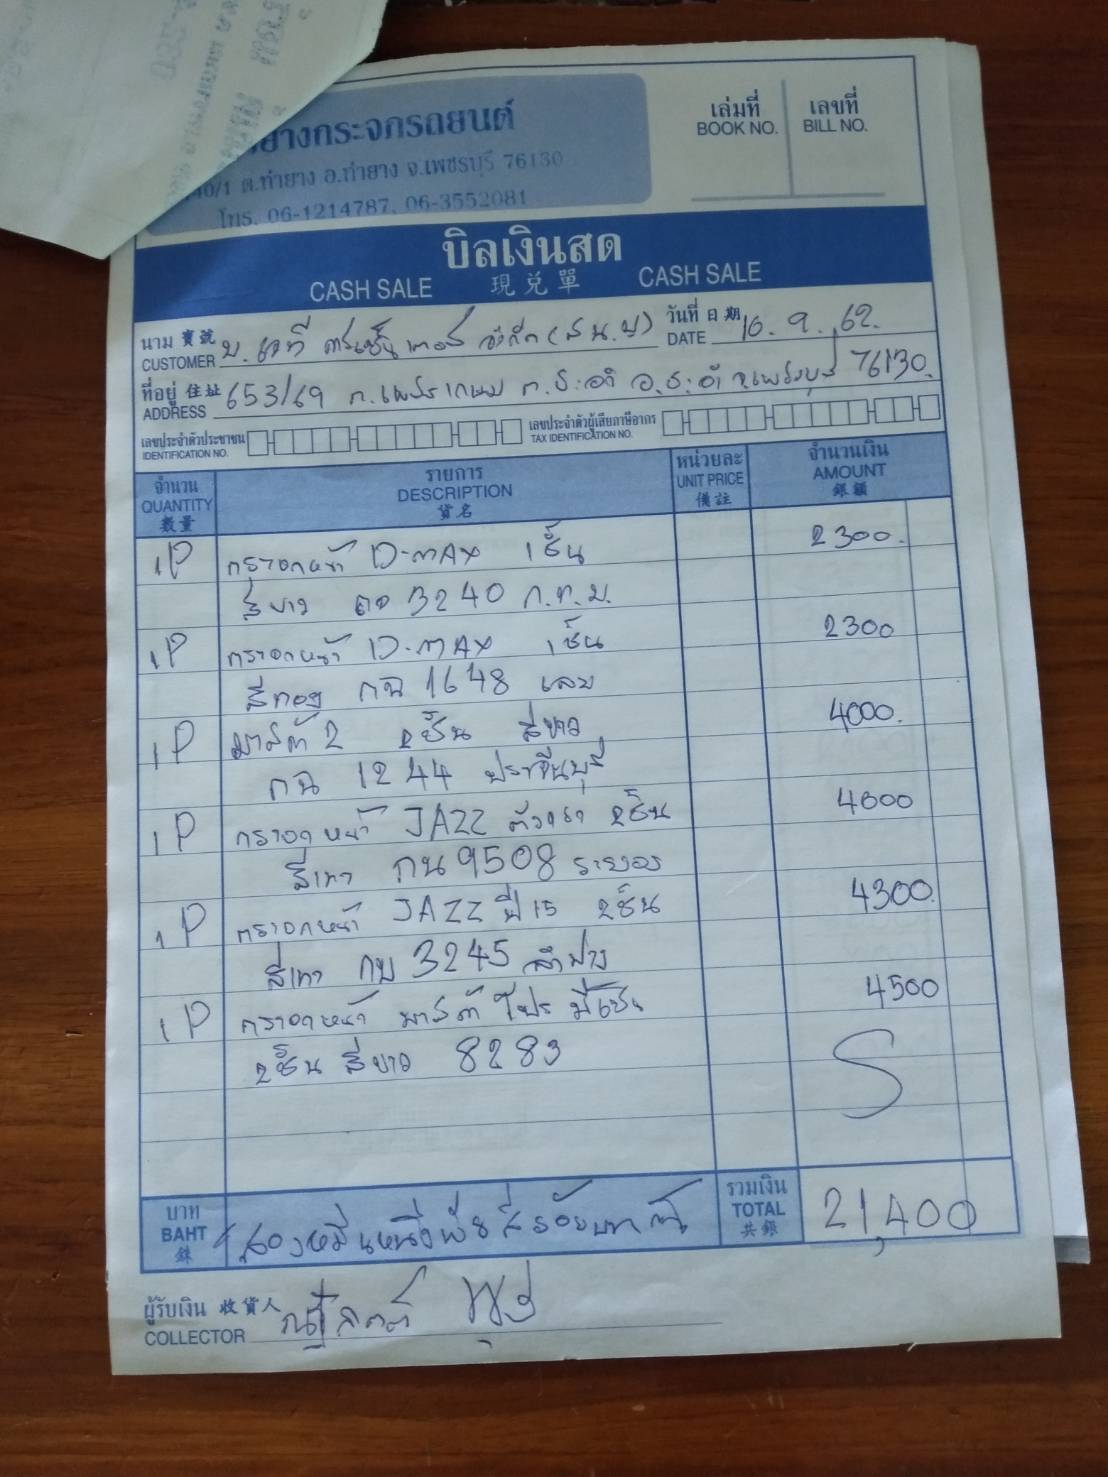 ยางกระจกรถยนต์
40/1 ต.ท่ายาง อ.ท่ายาง จ.เพชรบุรี 76130
โทร. 06-1214787, 06-3552081
เล่มที่ เลขที่
BOOK NO. BILL NO.
บิลเงินสด
CASH SALE 現兌單 CASH SALE
นาม 寶號 วันที่ 日期
CUSTOMER บ. จำกัด (ส.น.ญ) DATE 16.9.62.
ที่อยู่ 住址
ADDRESS 653/69 ถ.เพชรเกษม ต.ชะอำ อ.ชะอำ จ.เพชรบุรี 76130.
เลขประจำตัวประชาชน เลขประจำตัวผู้เสียภาษีอากร
IDENTIFICATION NO. TAX IDENTIFICATION NO.
จำนวน รายการ หน่วยละ จำนวนเงิน
QUANTITY DESCRIPTION UNIT PRICE AMOUNT
數量 貨名 備註 銀額
1P กระจกหน้า D-MAX 1ชั้น 2300.
สีขาว 3240 ก.ท.ม.
1P กระจกหน้า D-MAX 1ชั้น 2300
สีทอง กฉ 1648 เลย
1P มาสด้า 2 2ชั้น สีขาว 4000.
กฉ 1244 ปราจีนบุรี
1P กระจกหน้า JAZZ 2ชั้น 4000
สีเทา กน 9508 ระยอง
1P กระจกหน้า JAZZ ปี 15 2ชั้น 4300.
สีเทา กบ 3245 ลำปาง
1P กระจกหน้า มาสด้า โปร มีเซ็น 4500
2ชั้น สีขาว 8283
บาท รวมเงิน
BAHT สองหมื่นหนึ่งพันสี่ร้อยบาท TOTAL 21,400
銖 共銀
ผู้รับเงิน 收貨人
COLLECTOR